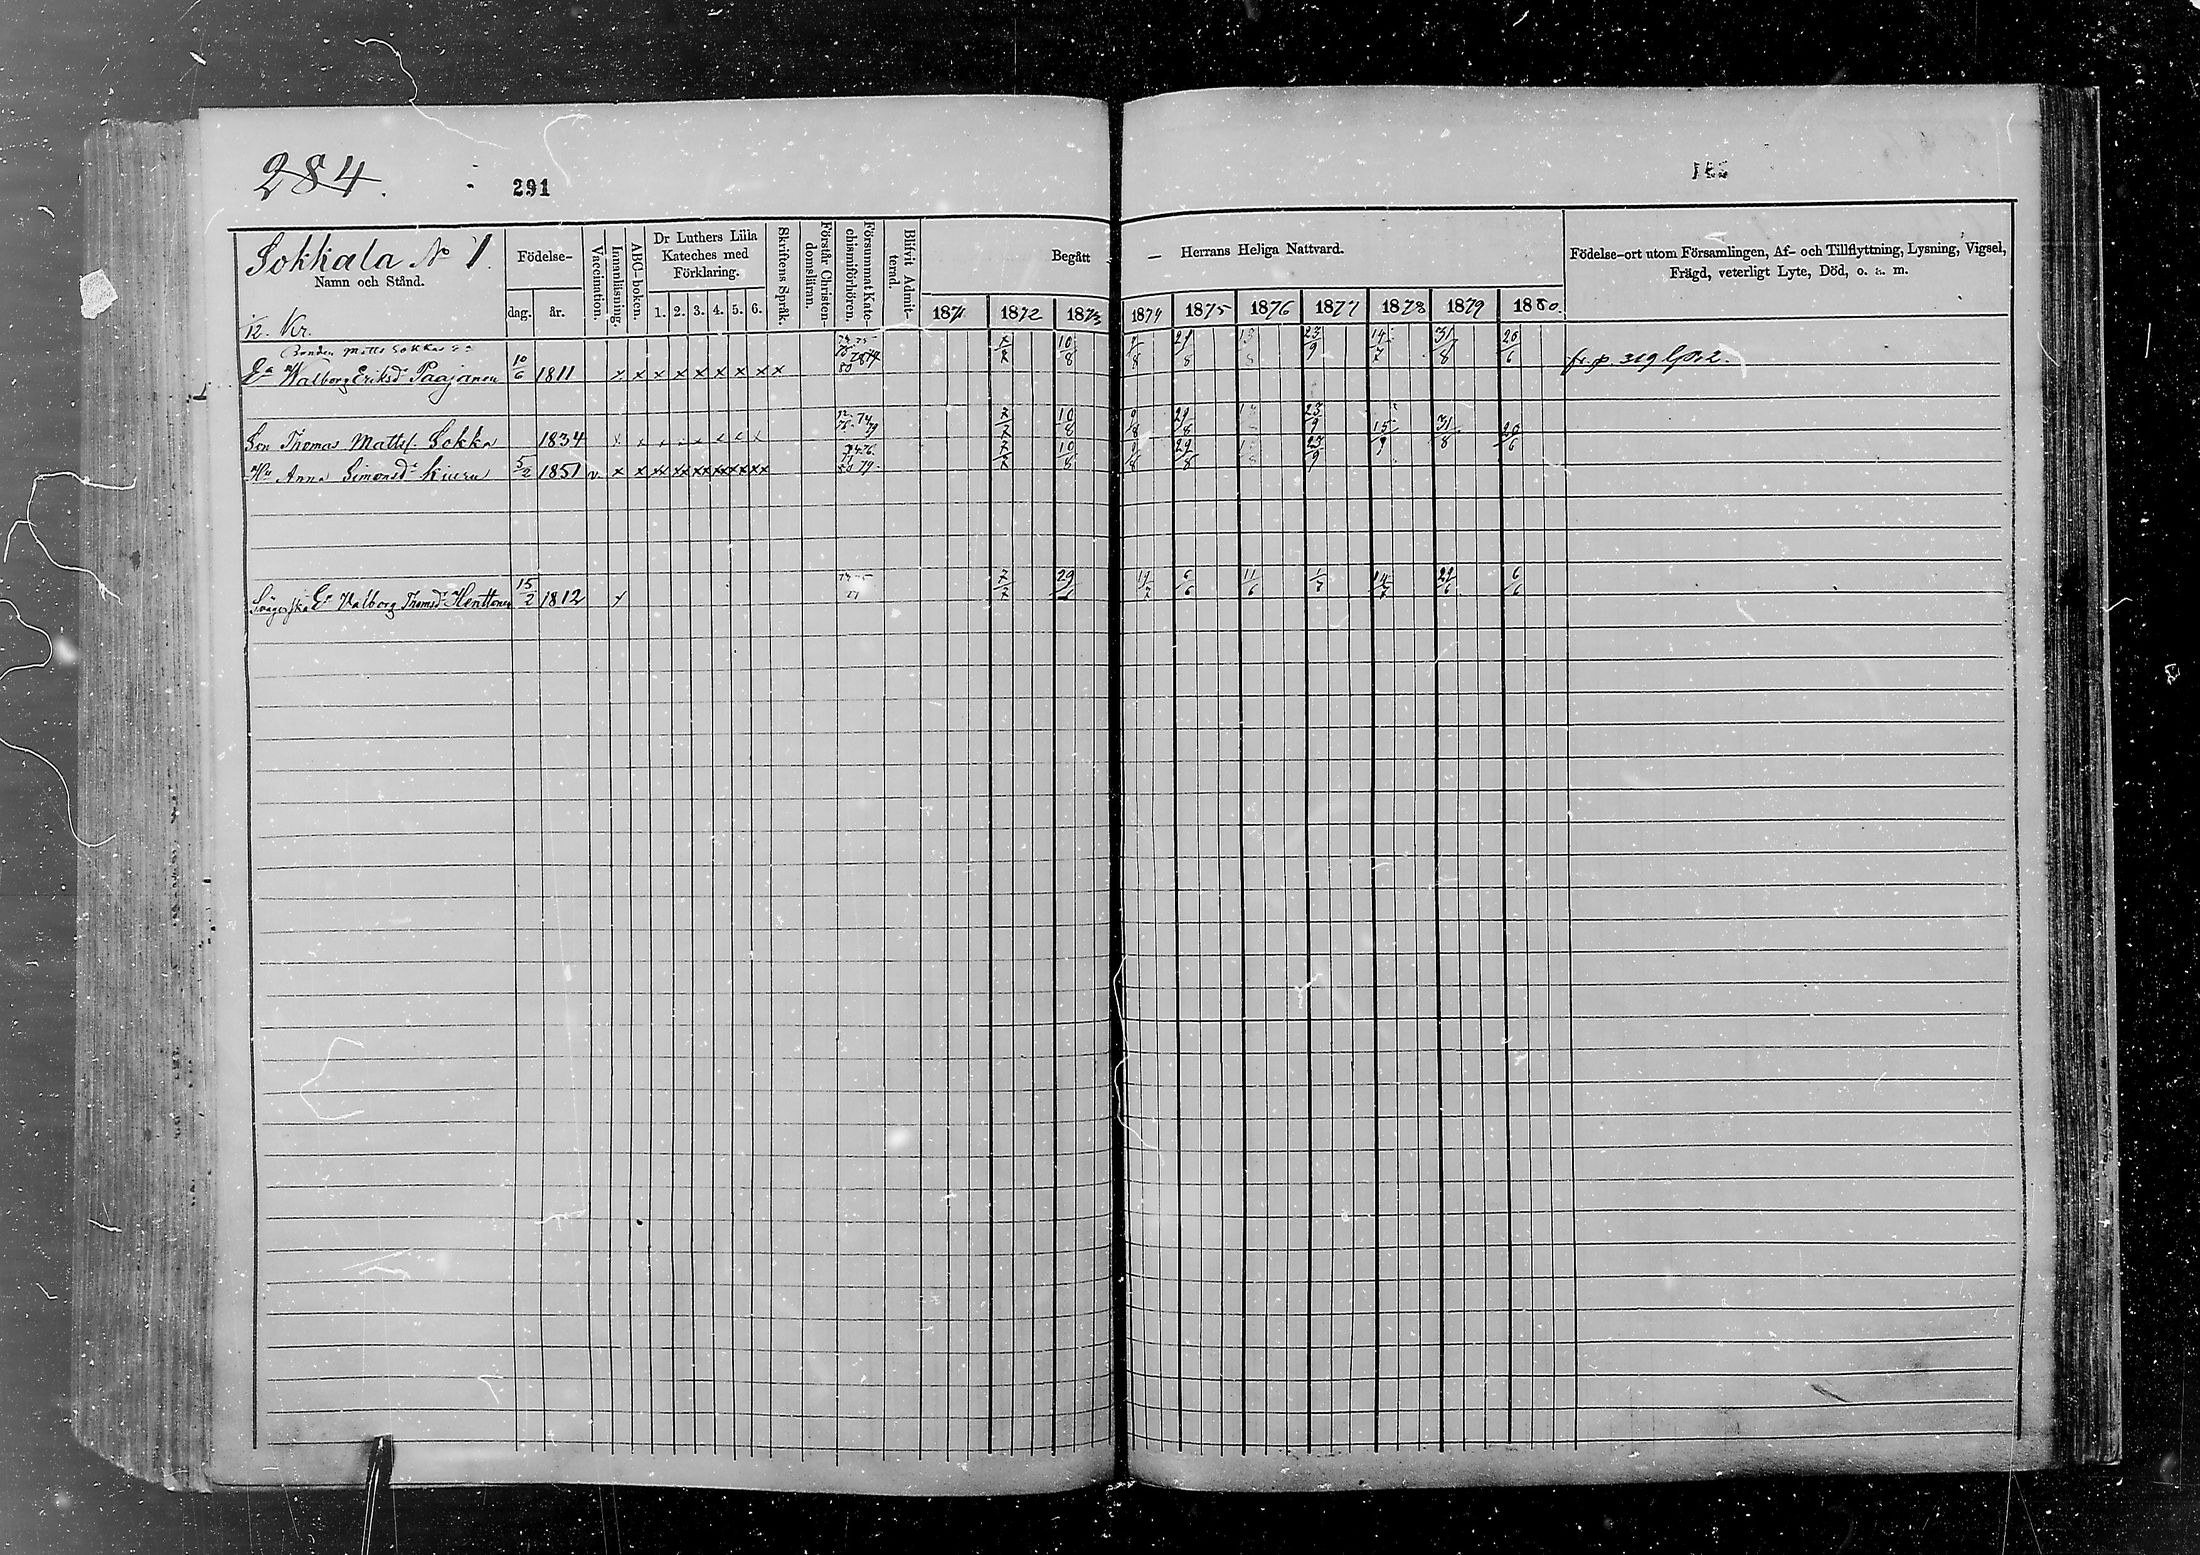 284.
291
Sokkala No 1.
Namn och Stånd.
Födelse-
dag.
år.
Vaccination.
Innanläsning.
ABC-boken.
Dr Luthers Lilla
Kateches med
Förklaring.
1. 2. 3. 4. 5. 6.
Skriftens Språk.
Förstår Christen-
domsläran.
Försummat Kate-
chismiförhören.
Blifvit Admit-
terad.
Begått — Herrans Heliga Nattvard.
1871 1872 1873 1874 1875 1876 1877 1878 1879 1880.
Födelse-ort utom Församlingen, Af- och Tillflyttning, Lysning, Vigsel,
Frägd, veterligt Lyte, Död, o. s. m.
Bonden Matts Sokkas
Ea Walborg Eriksd. Paajanen 10/6 1811 x x x x x x x x x 10/8 23/9 31/8 20/6 fr. p. 319
Son Thomas Mattss. Sokka 1834 10/8 9/8 29/8 23/9 15/9 31/8 20/6
Hu Anna Simonsd. Kiuru 5/2 1851 v x x xx xx xx xx xx xx 10/8 9/8 29/8 23/9
Svägerska Ea Valborg Thomsd. Henttonen 15/2 1812 6/6 11/6 1/7 14/7 22/6 6/6